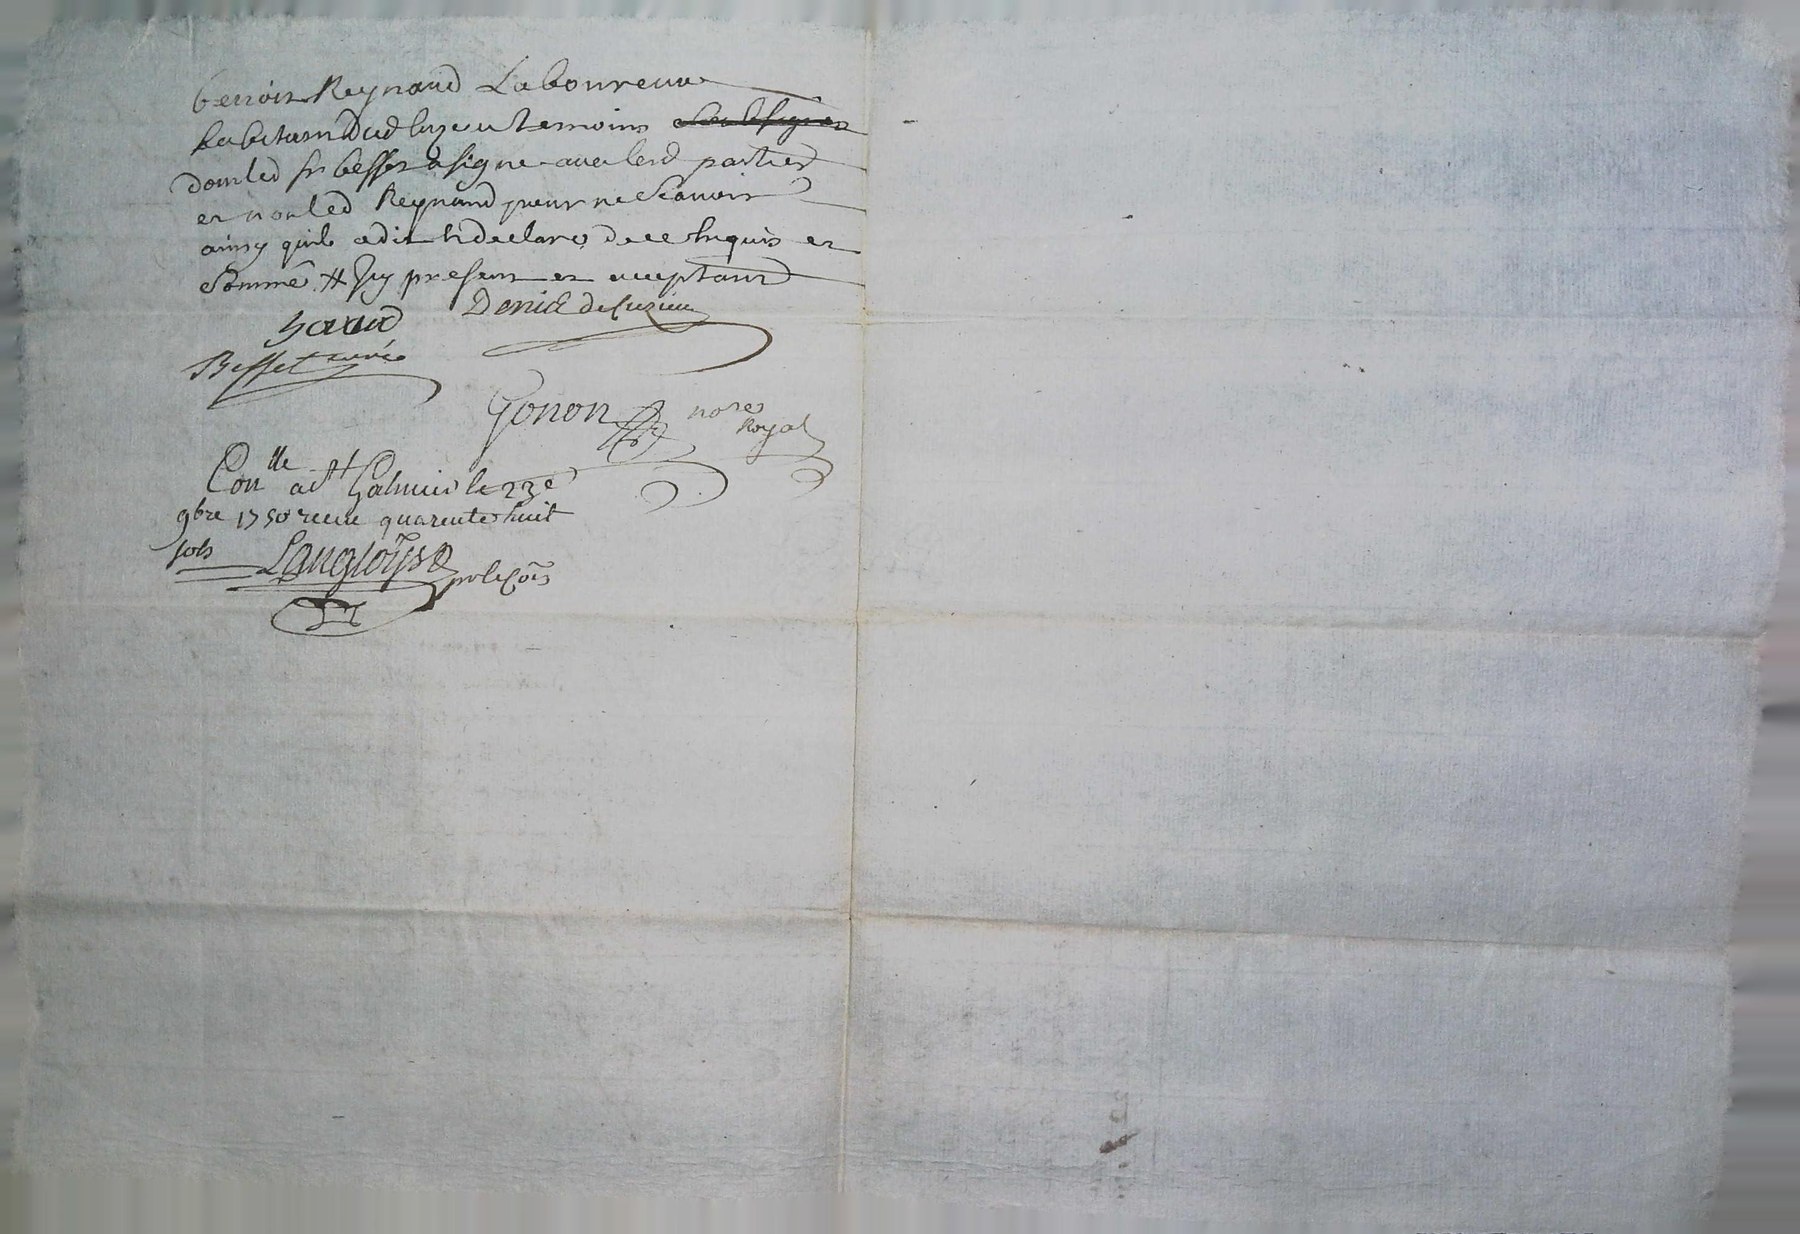 benoit Reynaud Laboureur
habitant dud luzeu temoins
dont led sr besset a signe avec lesd parties
et non led Reynaud pour ne Scavoir
ainsy quil a dit et declaré de ce enquis et
Sommé # Icy present et acceptant
Denis de Curieu
Besset curé
Gonon nore
Royal
Conlle a st Galmier le 23e
9bre 1750 receu quarente huit
sols Langloys